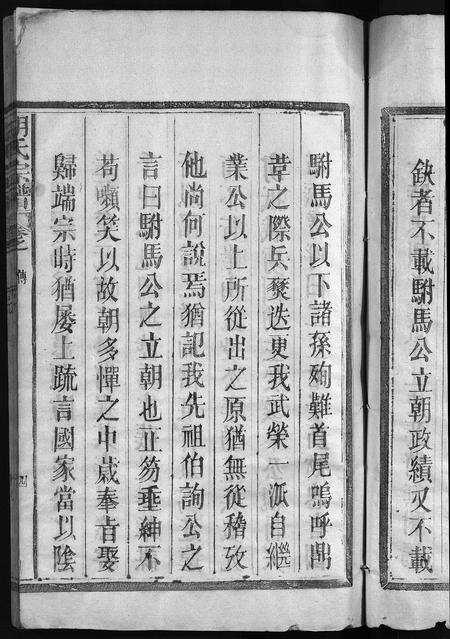 缺者不載駙馬公立朝政績又不載
駙馬公以下諸孫殉難首尾嗚呼鼎
革之際兵燹迭更我武榮一派自繼
業公以上所從出之原猶無從稽攷
他尚何說焉猶記我先祖伯詢公之
言曰駙馬公之立朝也正笏垂紳不
苟嚬笑以故朝多憚之中歲奉旨娶
歸端宗時猶屢上疏言國家當以陰
胡氏宗譜
卷之
傳
四